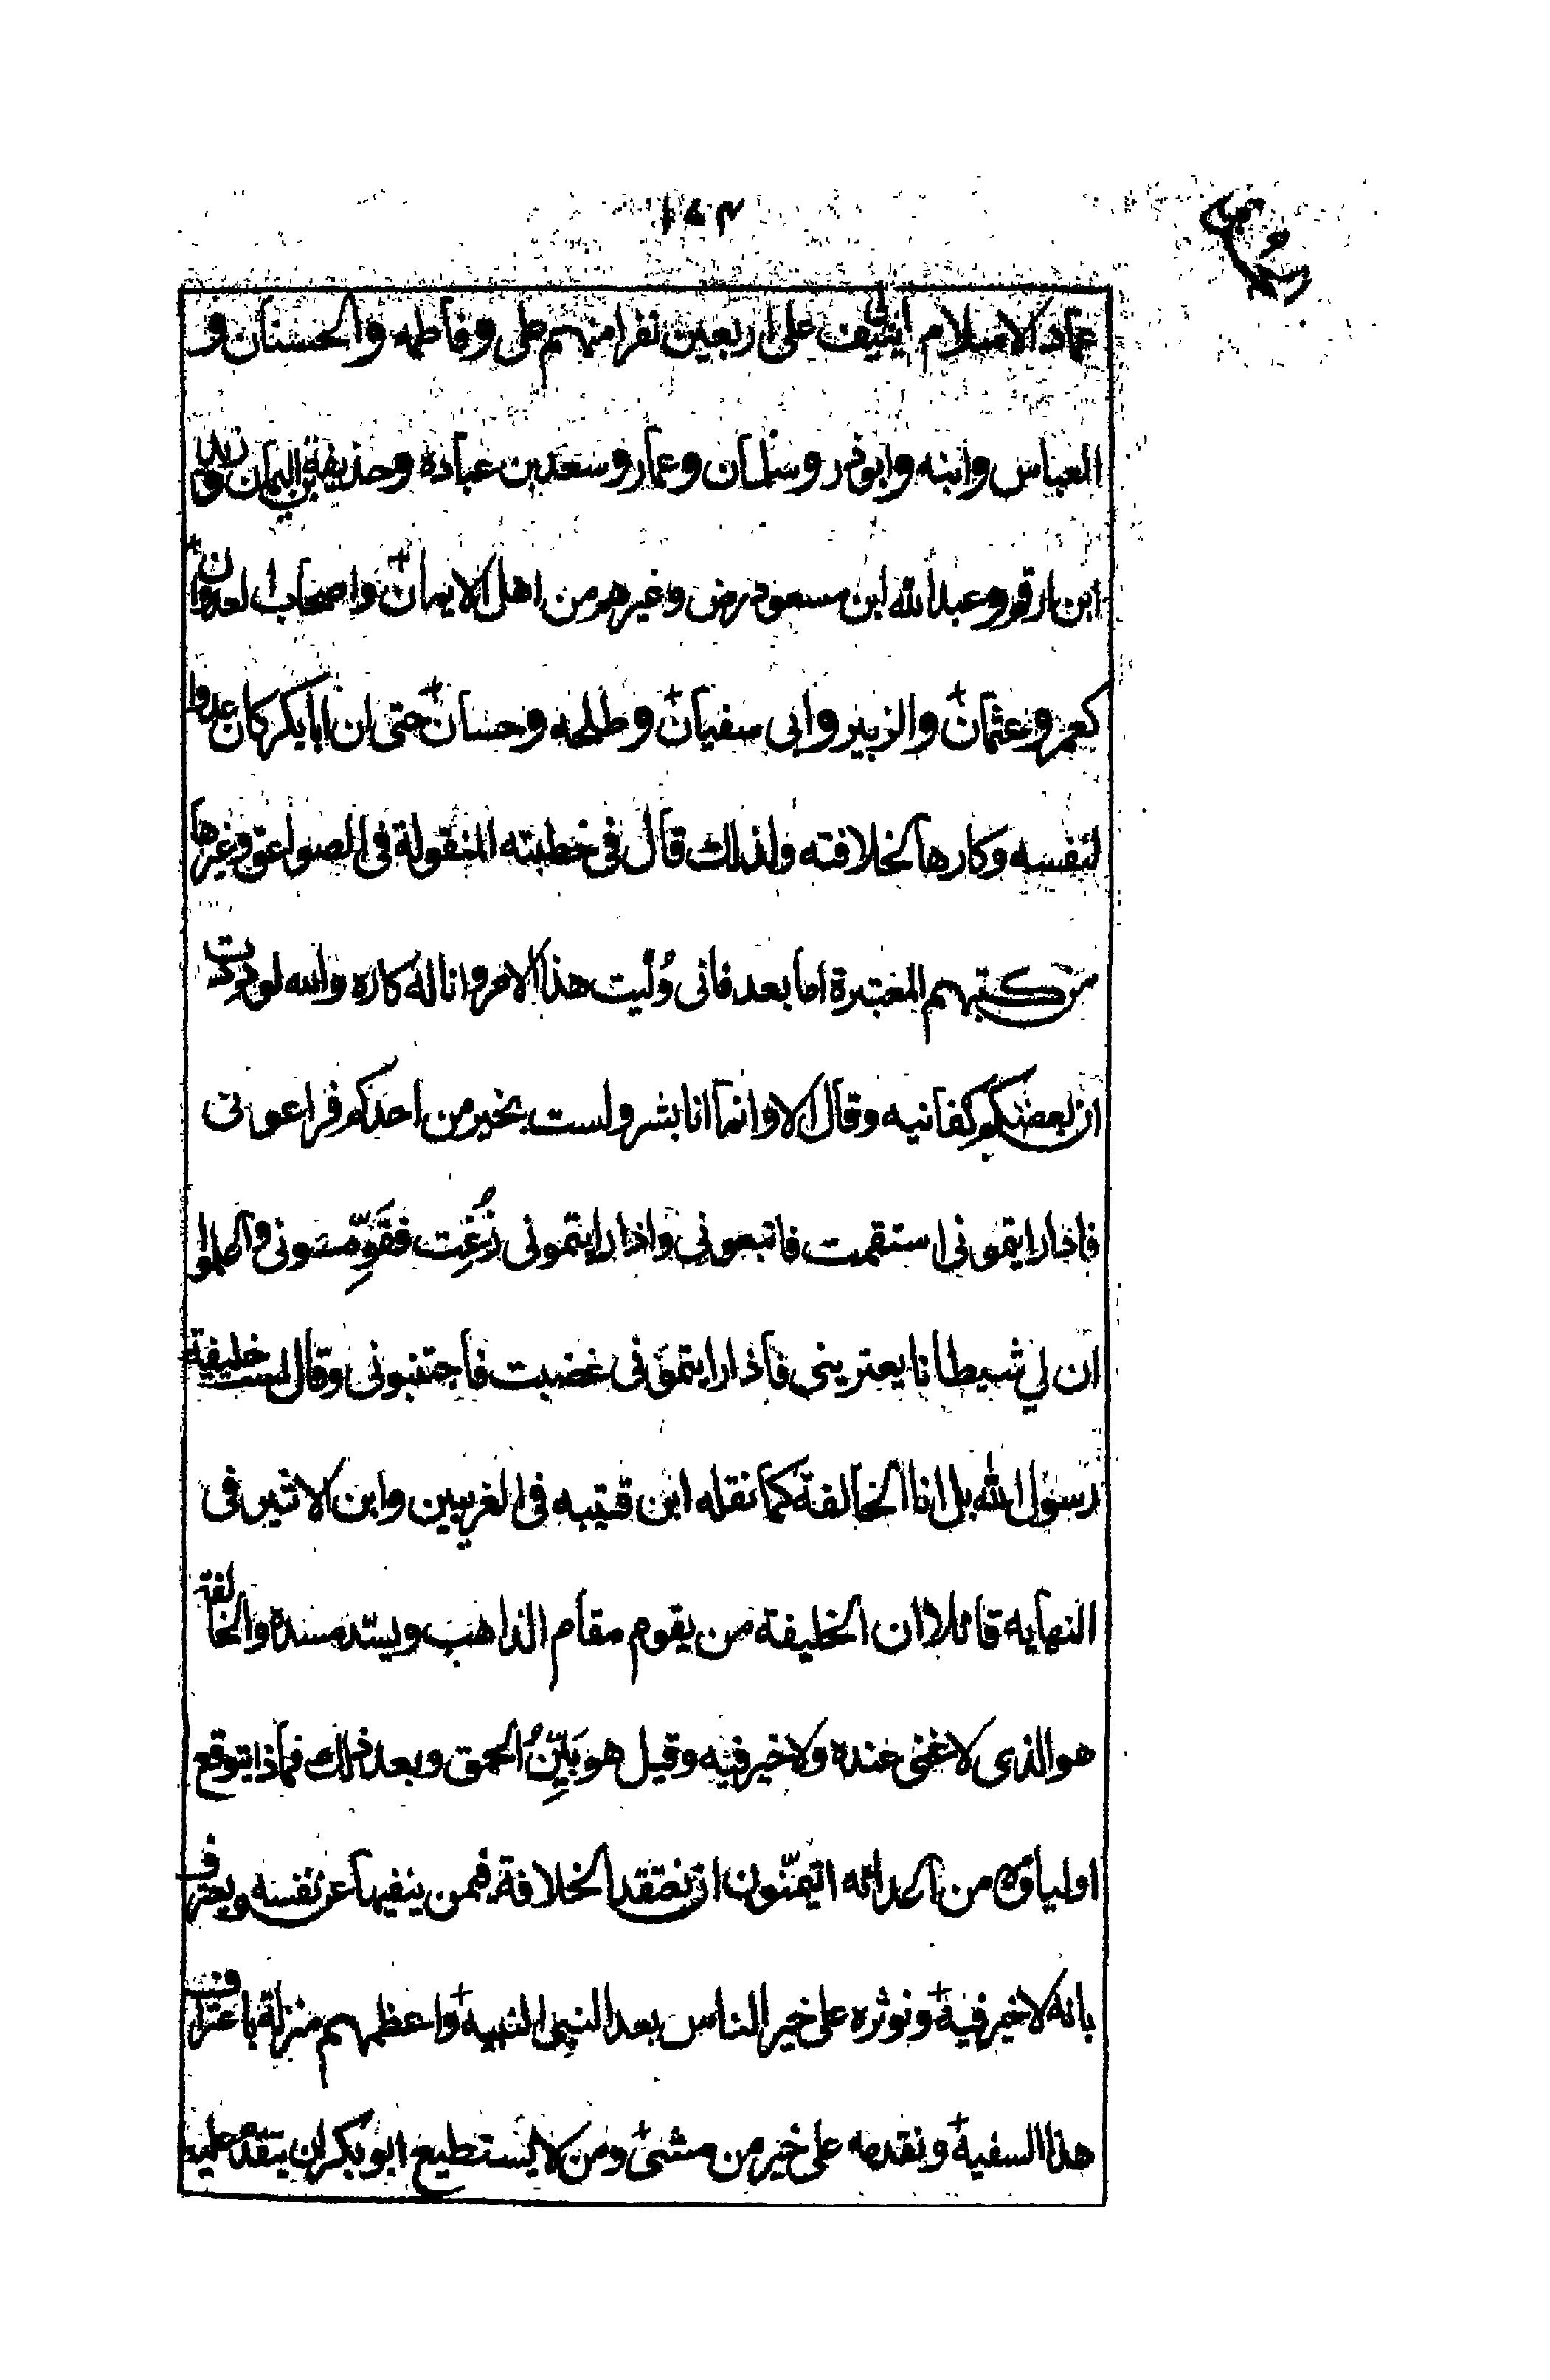 ١٨٣
عماد الاسلام ينيف على اربعين نفرا منهم على وفاطمه والحسنان و
العباس وابنه وابوذر وسلمان وعمار وسعد بن عباده وحذيفة بن اليمان وزيد
ابن ارقم وعبد الله ابن مسعود رض وغيرهم من اهل الايمان واصحاب العدوان
كعمر وعثمان والزبير وابى سفيان وطلحه وحسان حتى ان ابا بكر كان عدوا
لنفسه وكارها لخلافته ولذلك قال فى خطبته المنقولة فى الصواعق وغيرها
من كتبهم المعتبرة اما بعد فانى وُلّيت هذا الامر وانا له كاره والله لوددت
ان بعضكم كفانيه وقال الا وانما انا بشر ولست بخير من احدكم فراعونى
فاذا رايتمونى استقمت فاتبعونى واذا رايتمونى زُغِت فقَوِّمونى واعلموا
ان لي شيطانا يعترينى فاذا رايتمونى غضبت فاجتنبونى وقال لست خليفة
رسول الله بل انا الخالفة كما نقله ابن قتيبه فى الغريبين وابن الاثير فى
النهايه قائلا ان الخليفة من يقوم مقام الذاهب ويسّد مسده والخالفة
هو الذى لا غنى عنده ولا خير فيه وقيل هو بَيِّنُ الحمق وبعد ذلك فماذا يتوقع
اولياؤه من اعدائه اتيمنّون ان نعتقد الخلافة فيمن ينفيها عن نفسه ويعترف
بانه لا خير فيه ونوثره على خير الناس بعد النبى النبيه واعظمهم منزلة باعتراف
هذا السفيه ونقدمه على خير من مشى ومن لا يستطيع ابو بكر ان يتقدم عليه